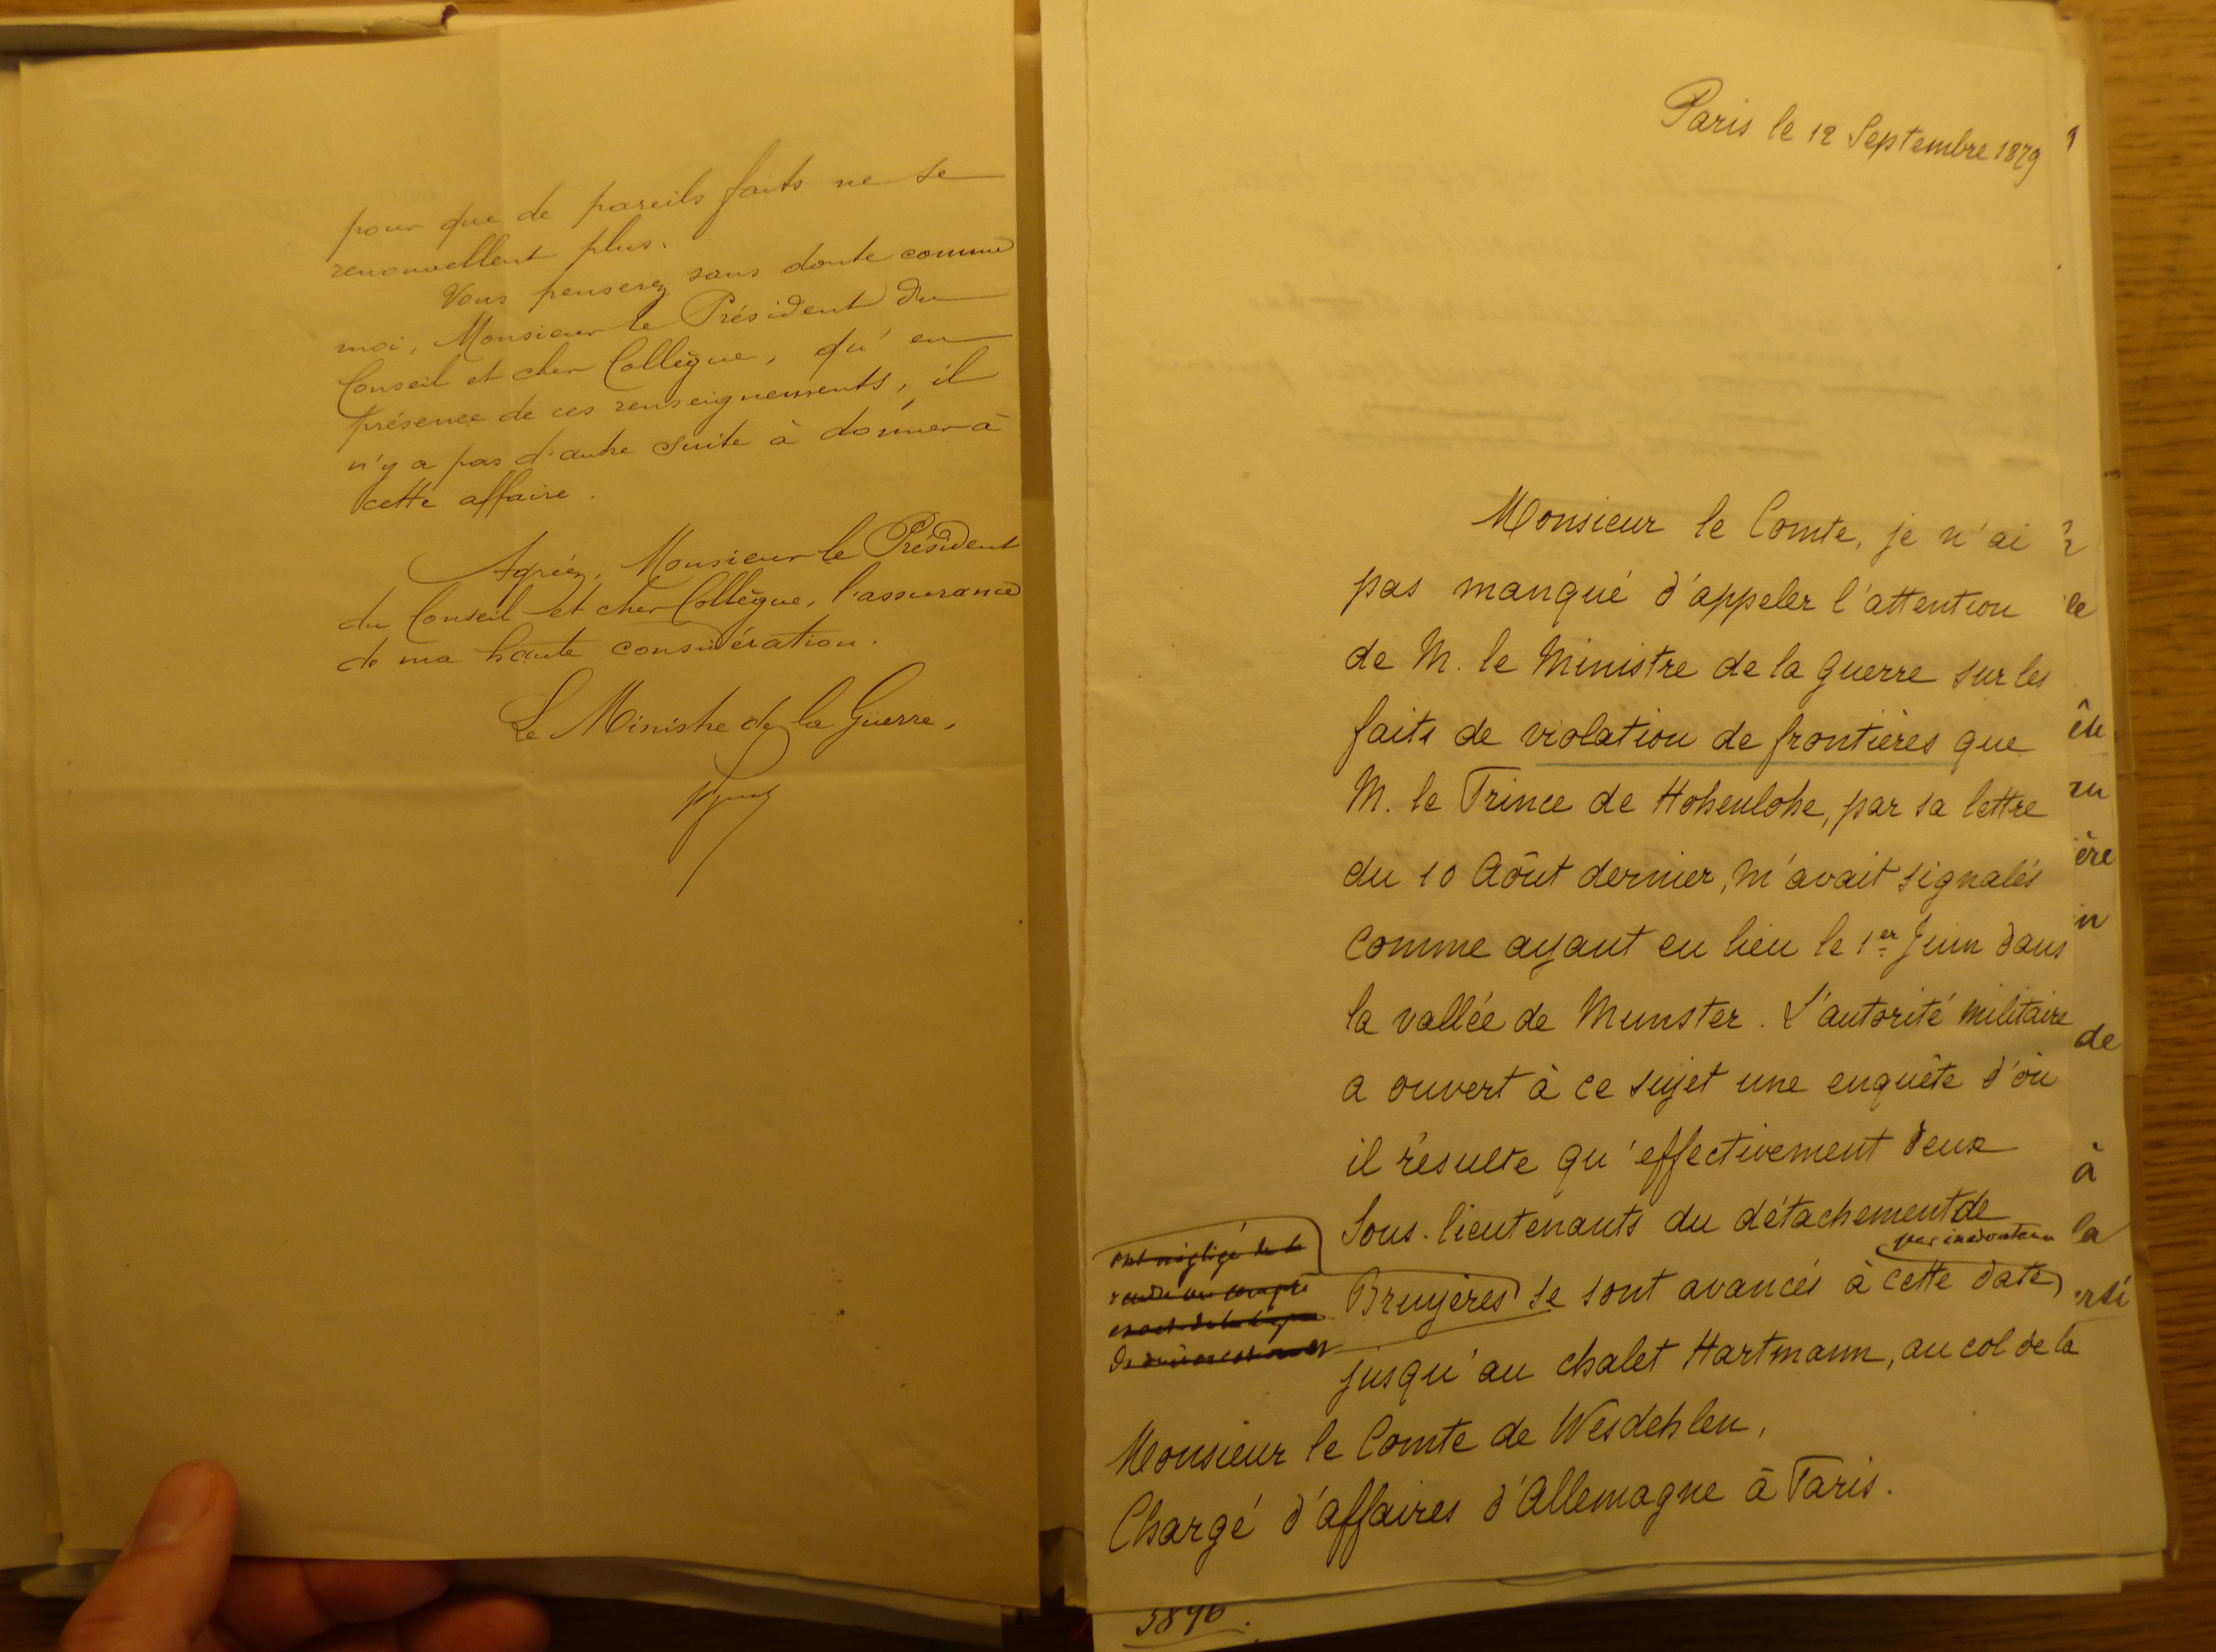 pour que de pareils faits ne se
renouvellent plus.
Vous penserez sans doute comme
moi, Monsieur le Président du
Conseil et cher Collègue, qu'en
présence de ces renseignements, il
n'y a pas d'autre suite à donner à
cette affaire.
Agréez, Monsieur le Président
du Conseil et cher Collègue, l'assurance
de ma haute considération.
Le Ministre de la Guerre,
Paris le 12 Septembre 1879
Monsieur le Comte, je n'ai
pas manqué d'appeler l'attention
de M. le Ministre de la guerre sur les
faits de violation de frontières que
M. le Prince de Hohenlohe, par sa lettre
du 10 Aôut dernier, m'avait signalés
comme ayant eu lieu le 1er Juin dans
la vallée de Munster. L'autorité militaire
a ouvert à ce sujet une enquête d'où
il résulte qu'effectivement deux
Sous-lieutenants du détachement de
par inadvertance
Bruyères se sont avancés à cette date
jusqu'au chalet Hartmann, au col de la
ont négligé de se
rendre un compte
exact de la ligne
de démarcation et
Monsieur le Comte de Wesdehlen,
Chargé d'affaires d'Allemagne à Paris.
le
ère
de
à
la